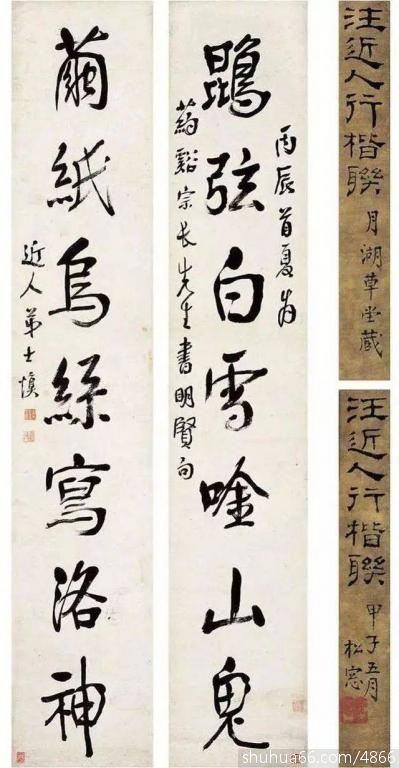 汪近人行楷聯
月湖草堂藏
汪近人行楷聯
甲子五月
松窓
丙辰首夏為
鵾弦白雪唫山鬼
葯谿宗長先生書明賢句
繭紙烏絲寫洛神
近人弟士慎
shuhua66.com/4866